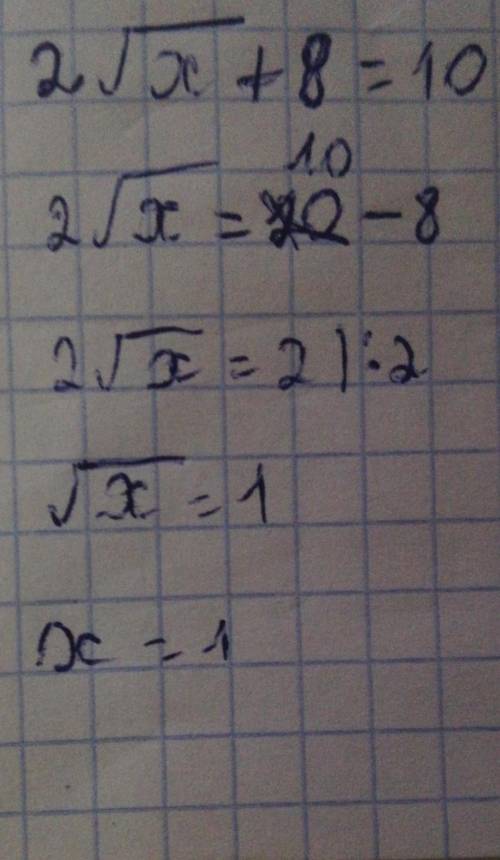 2√x + 8 = 10
2√x = 10 - 8
2√x = 2 |:2
√x = 1
x = 1